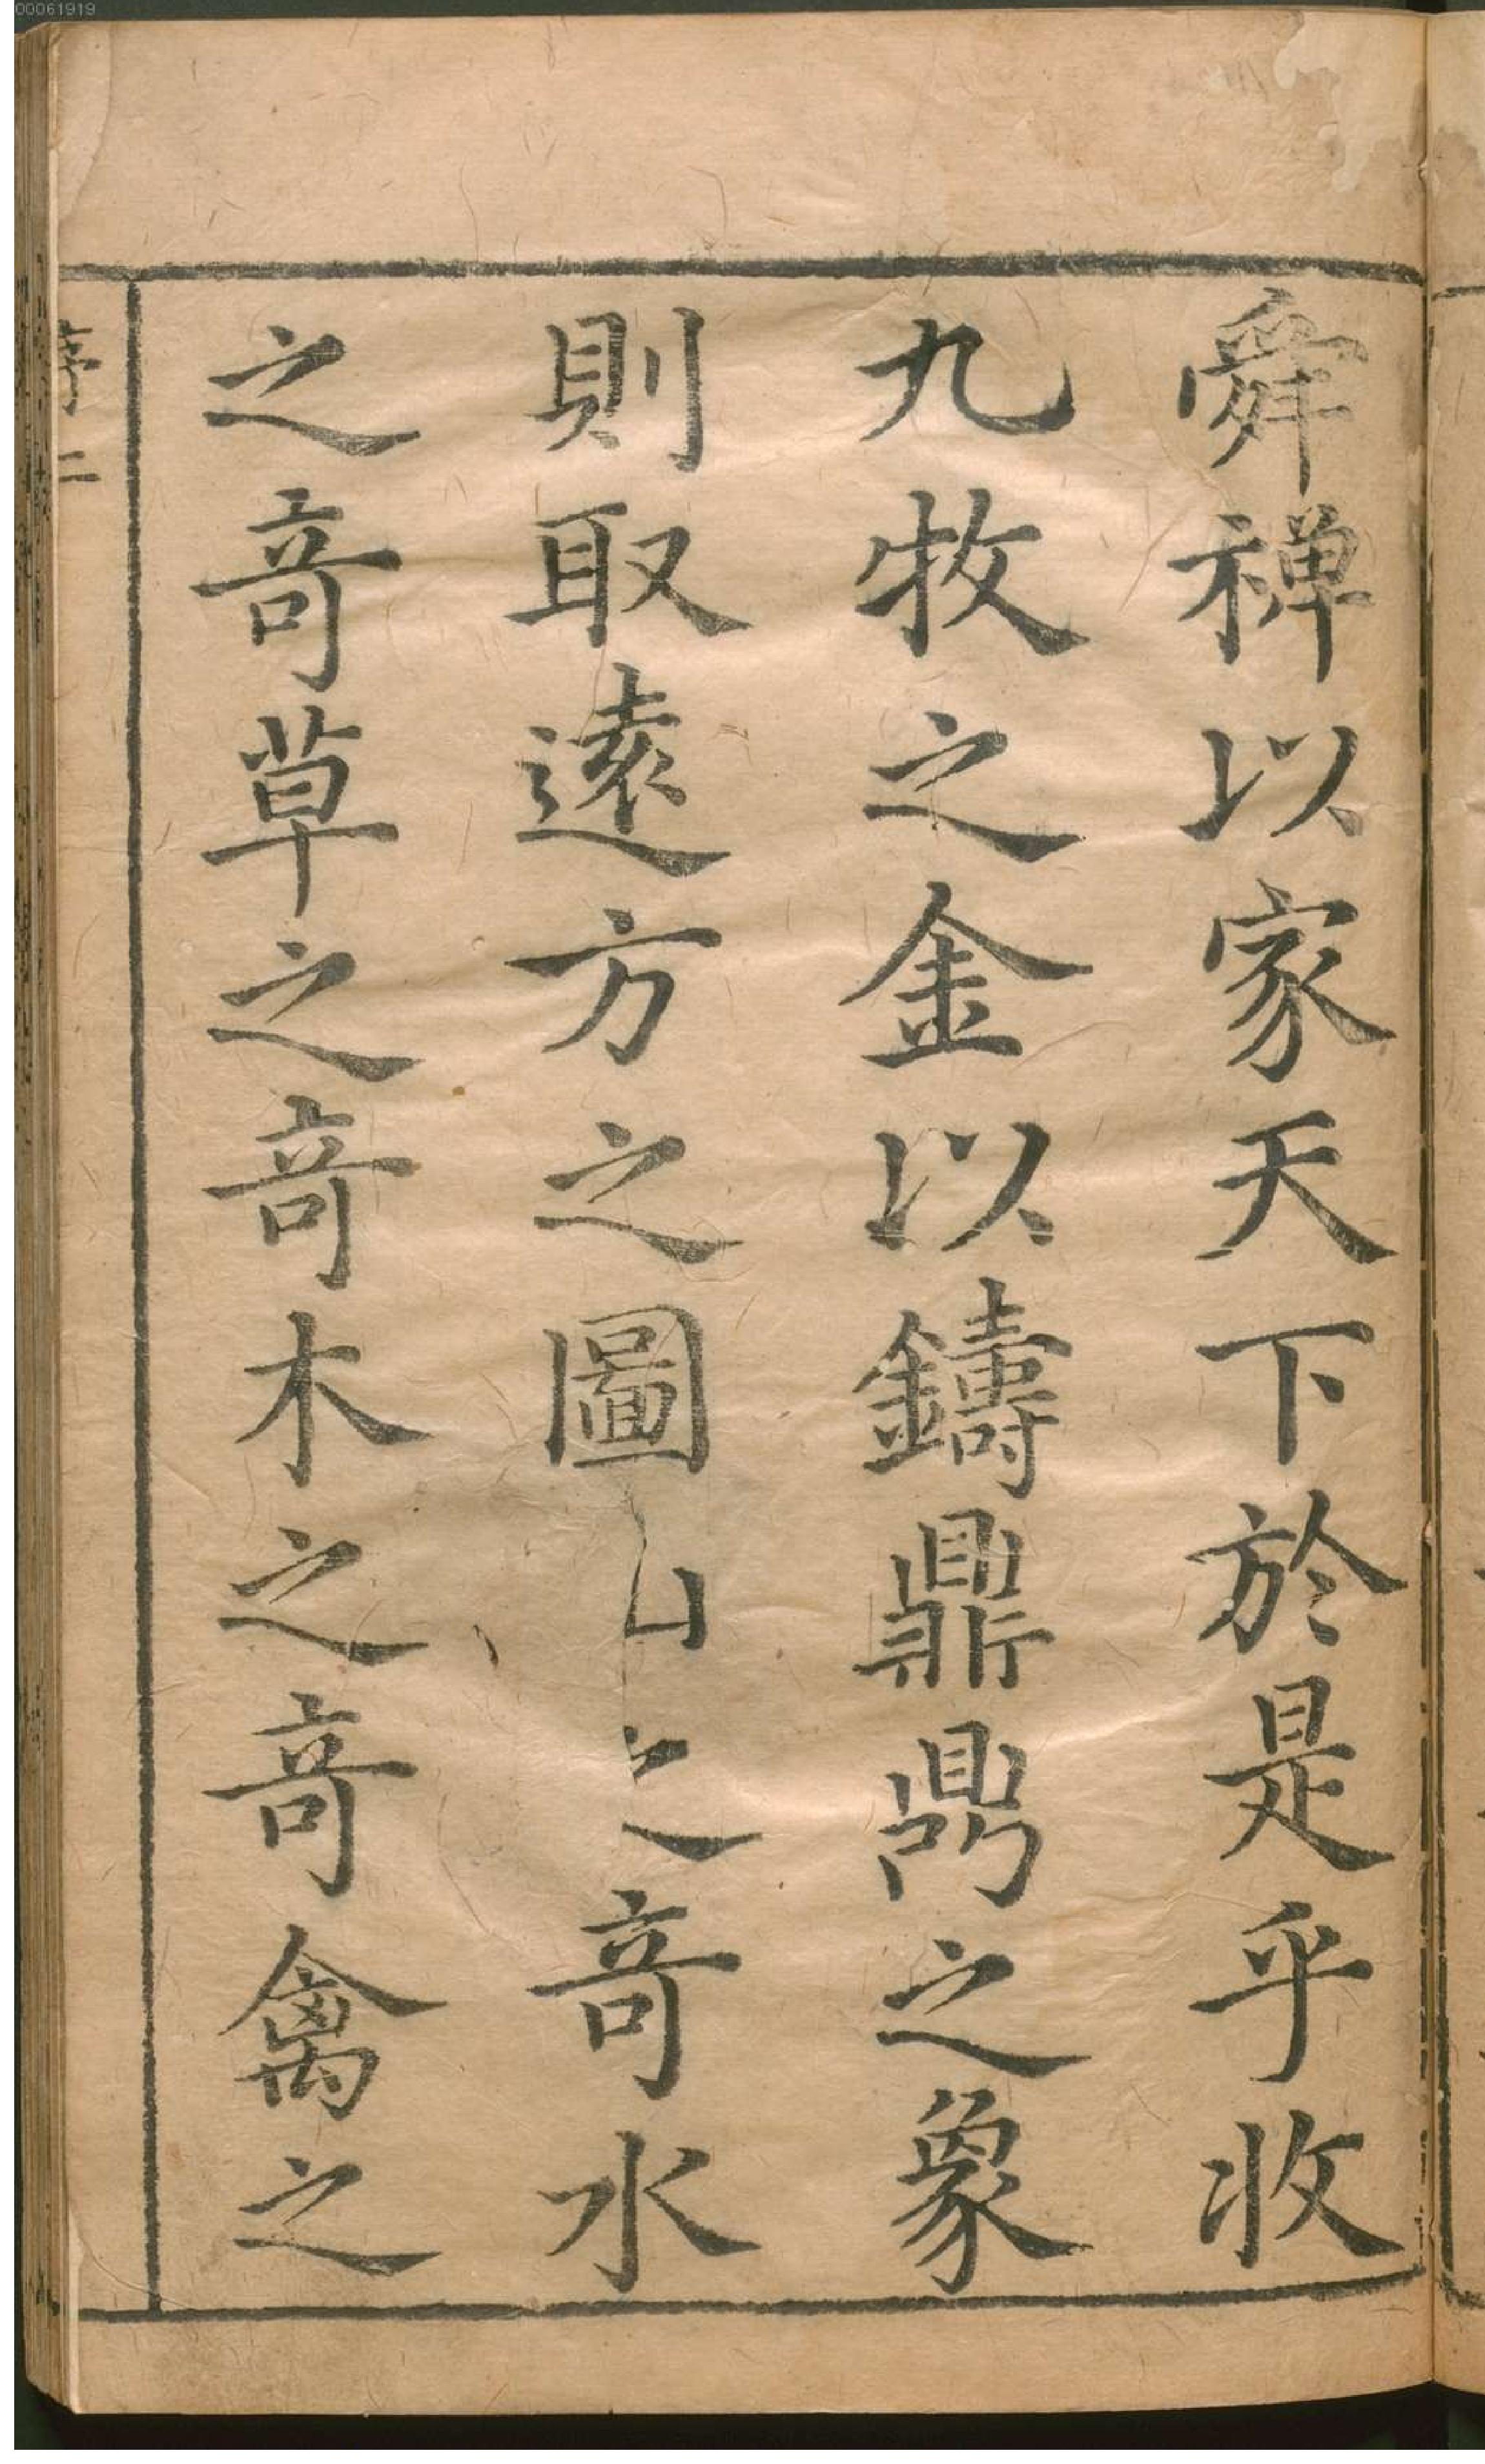 00061919
舜禪以家天下於是乎收
九牧之金以鑄鼎鼎之象
則取遠方之圖山之竒水
之竒草之竒木之竒禽之
序二